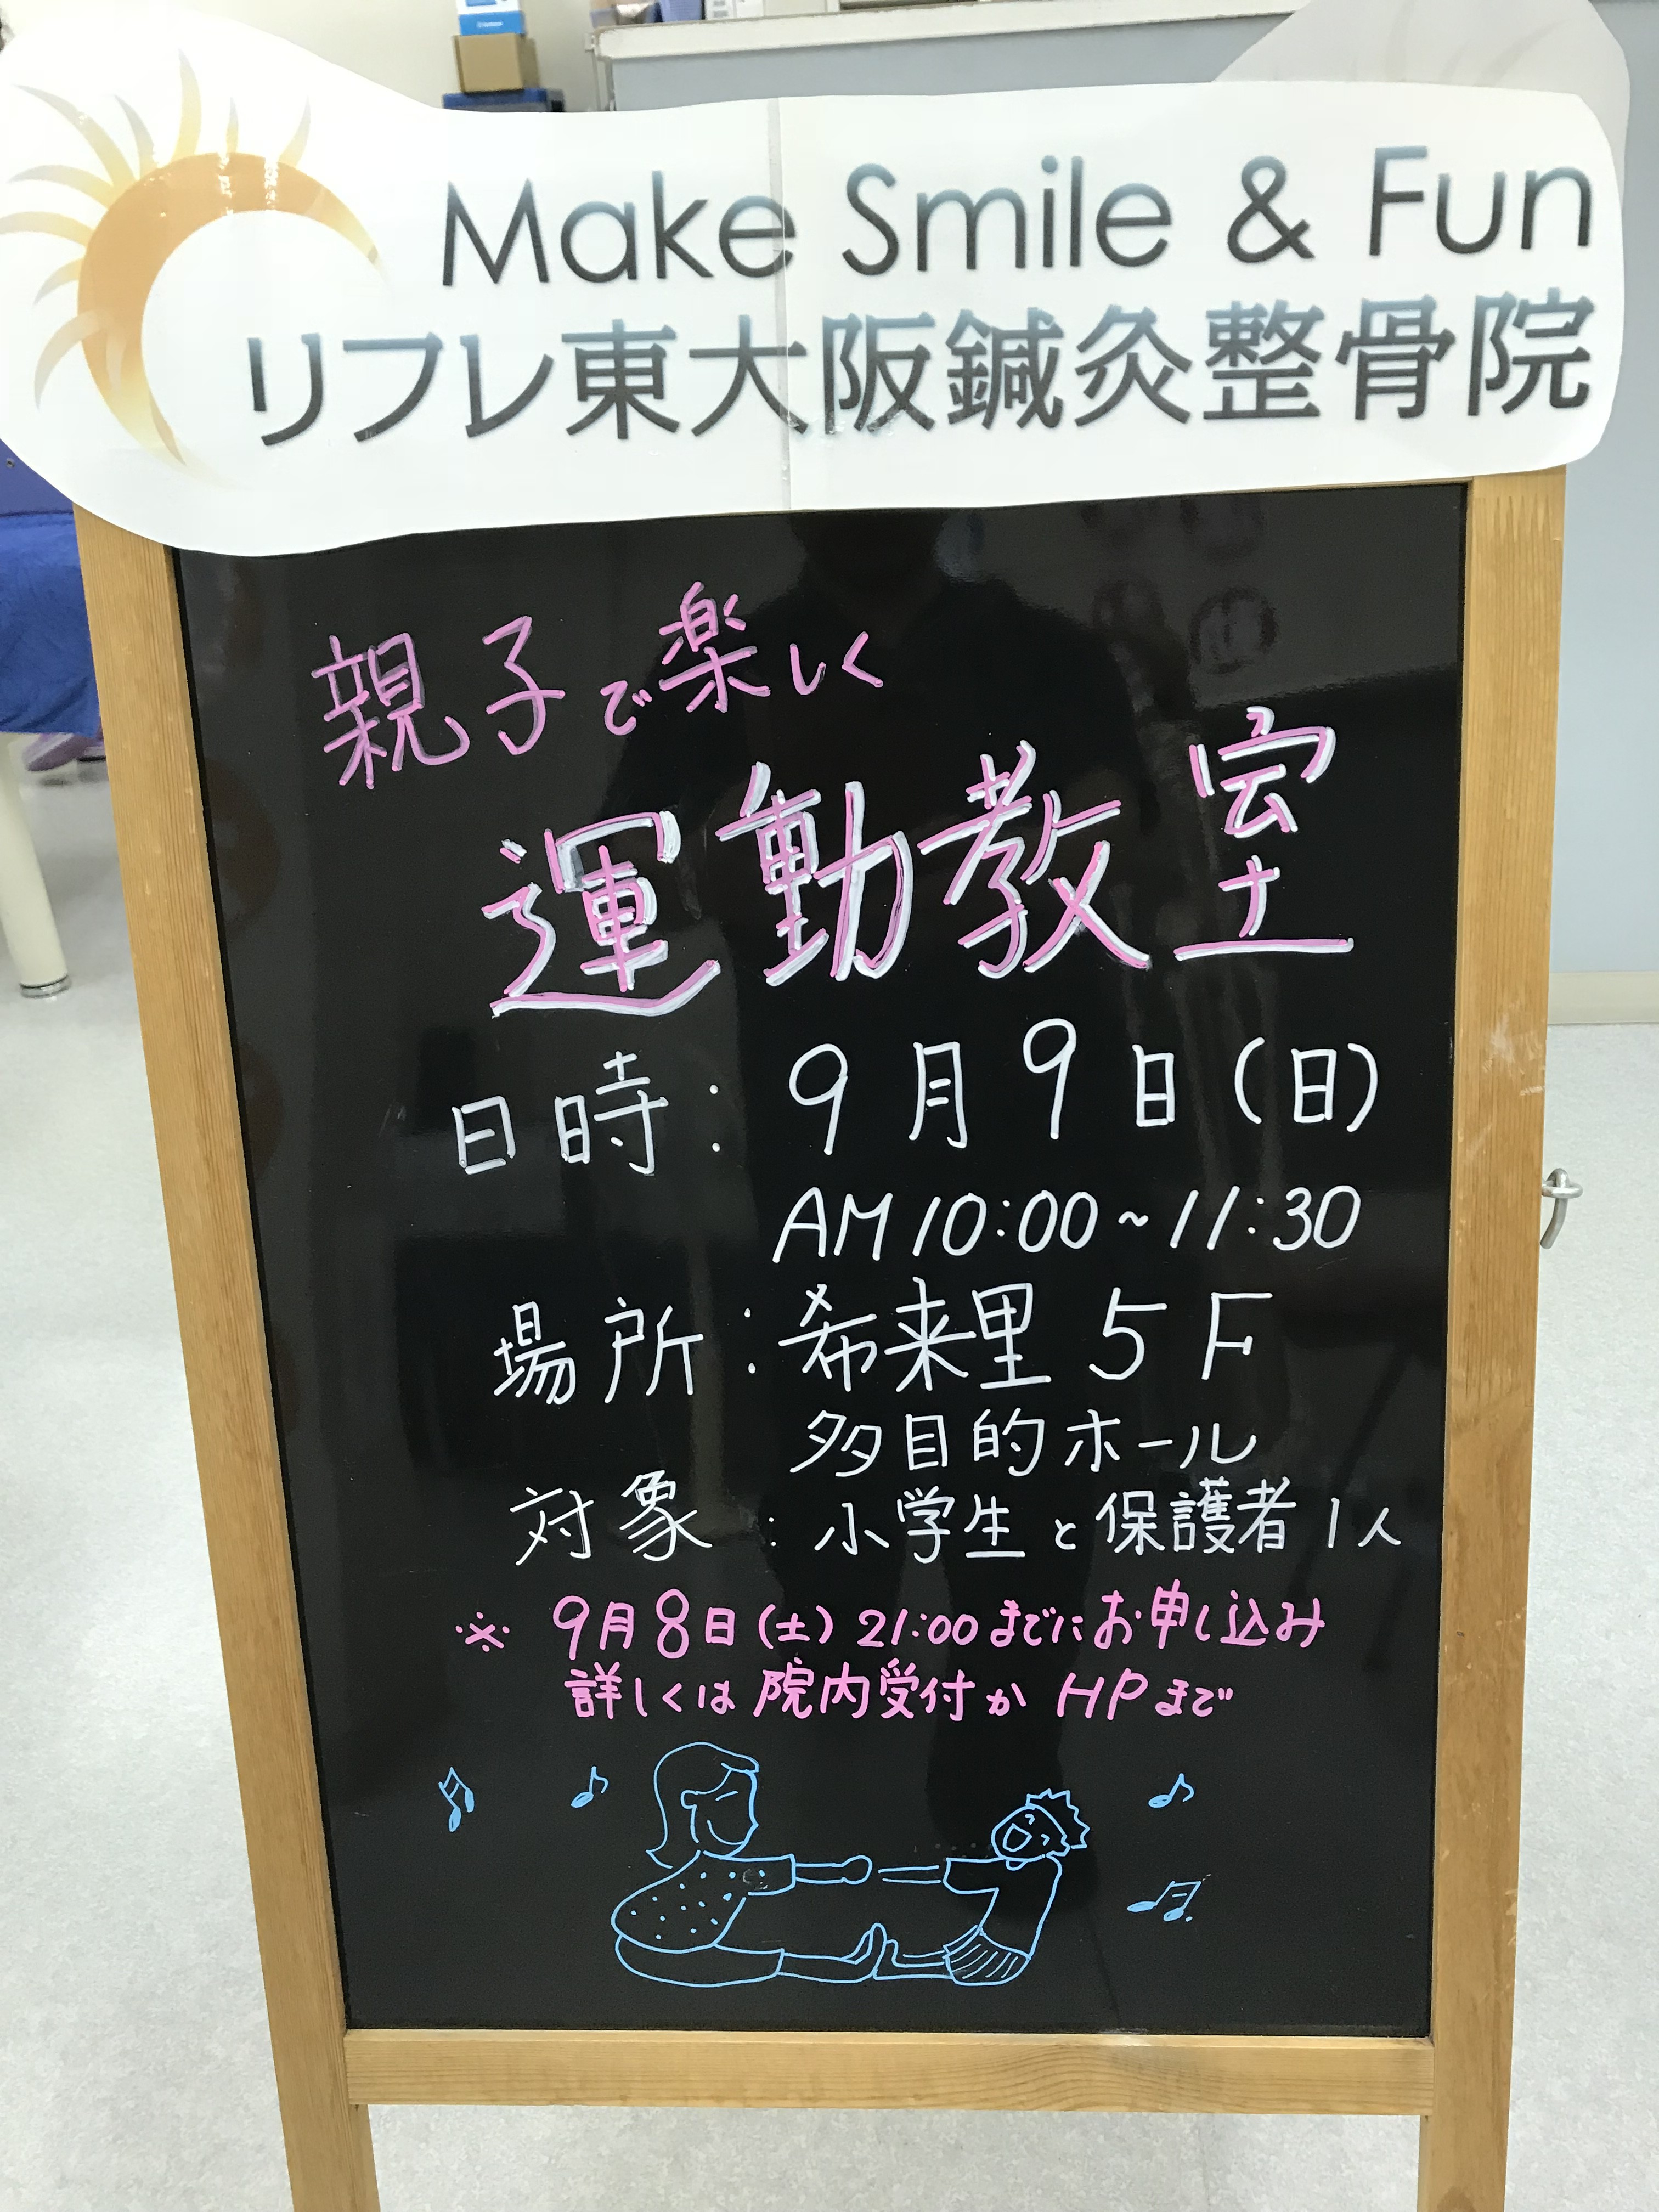 Make Smile & Fun
リフレ東大阪鍼灸整骨院
親子で楽しく
運動教室
日時：9月9日(日)
AM10:00~11:30
場所：希来里5F
多目的ホール
対象：小学生と保護者1人
※9月8日(土)21:00までにお申し込み
詳しくは院内受付かHPまで